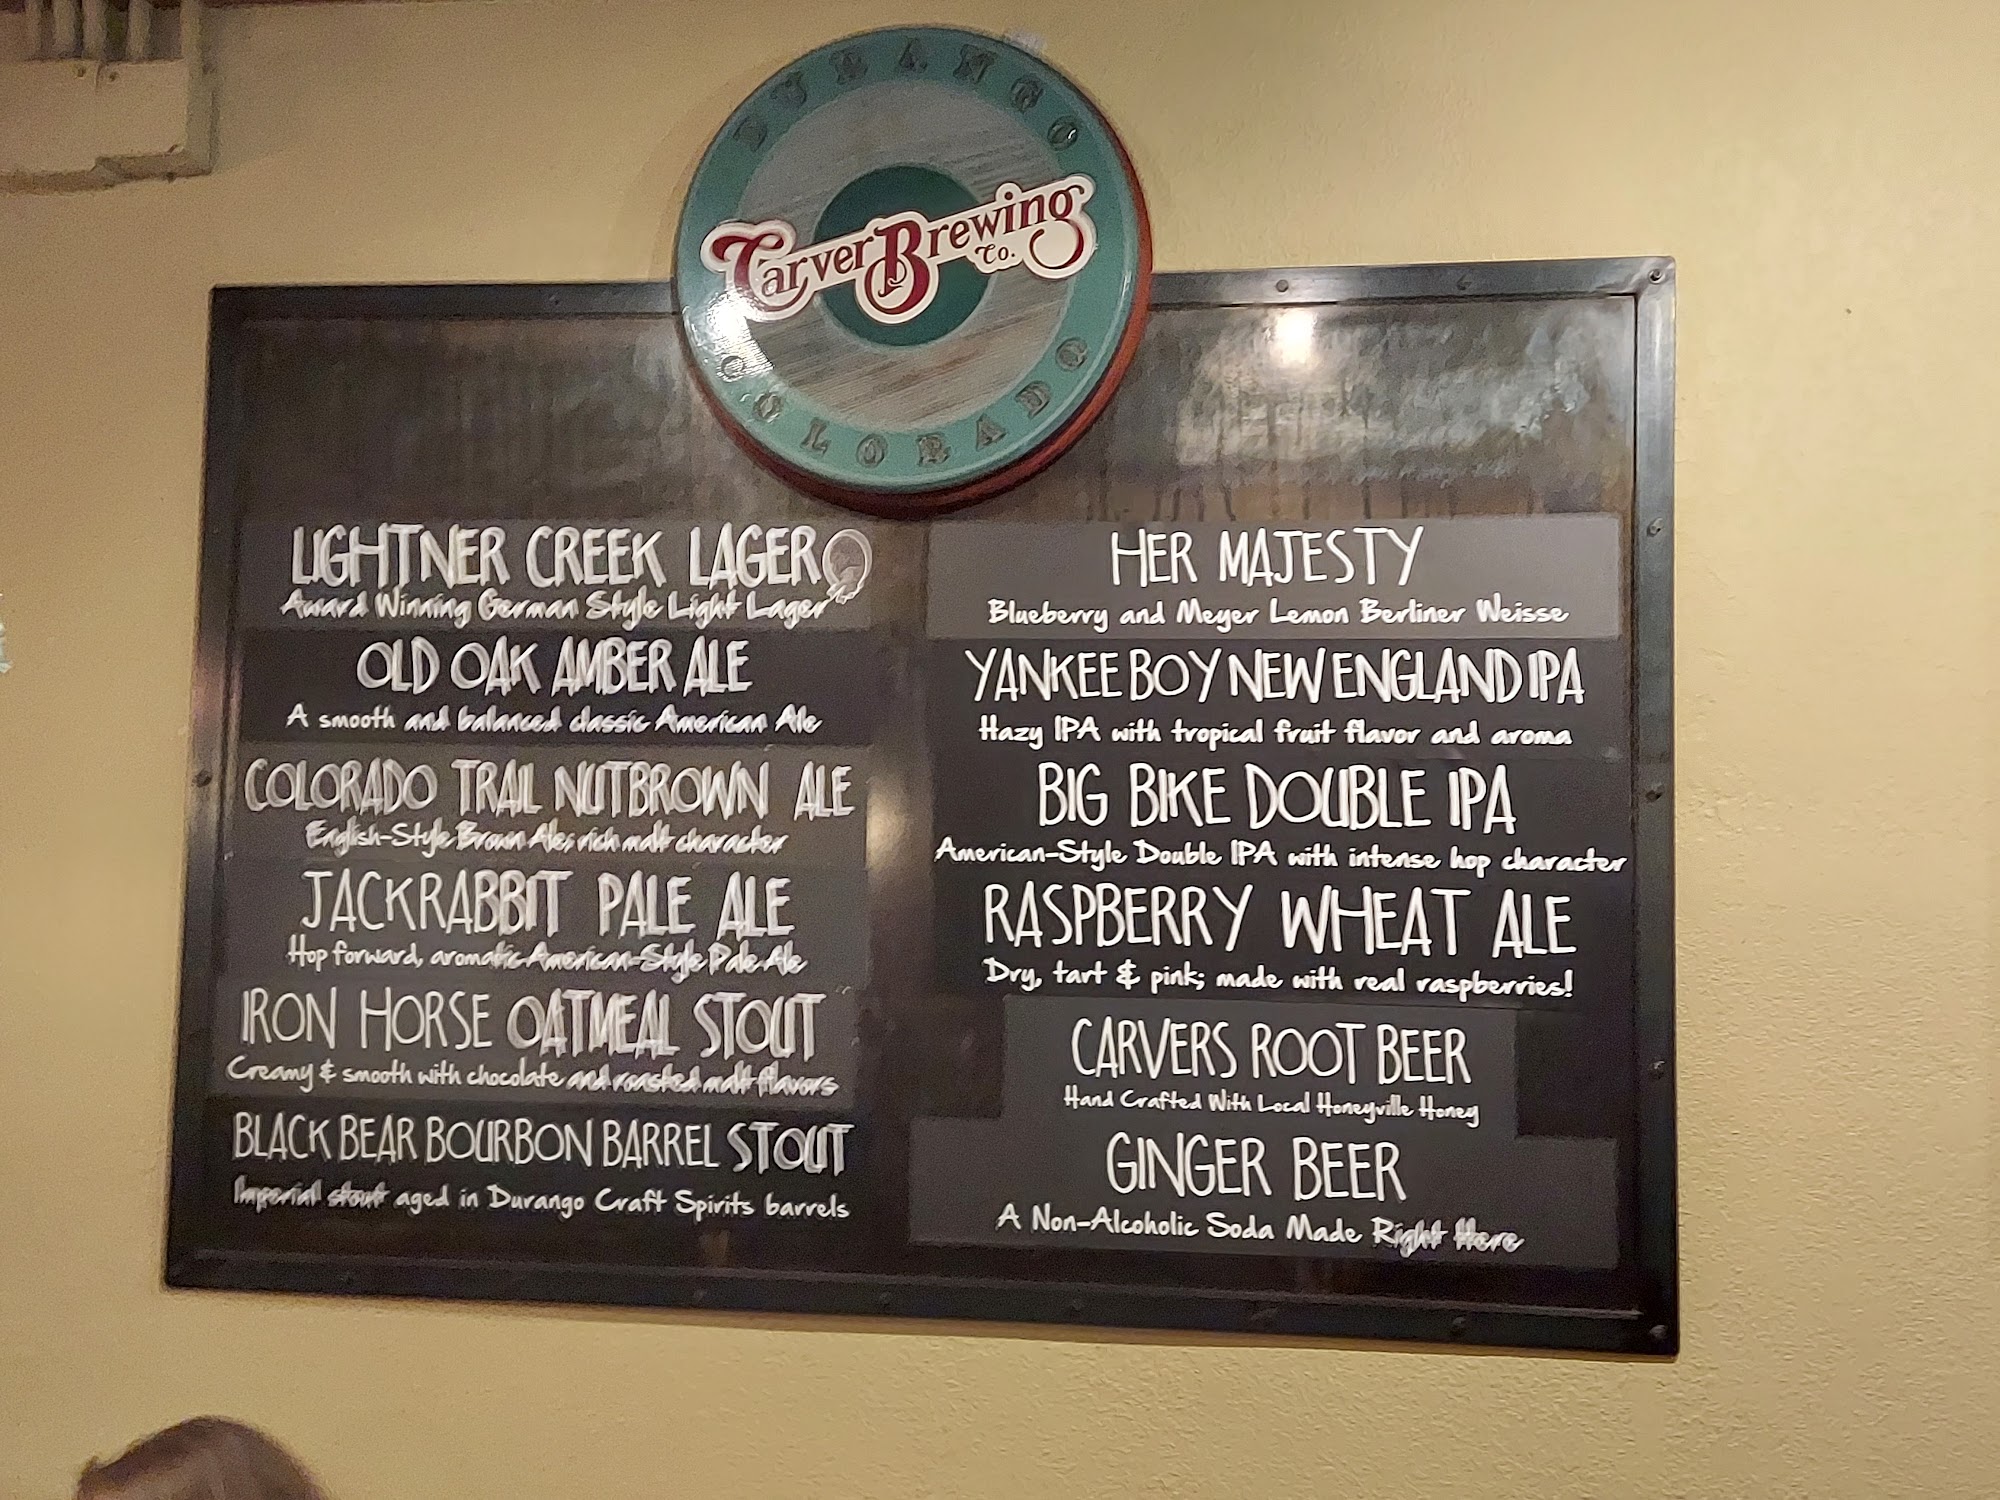 DURANGO
Carver Brewing Co.
COLORADO
LIGHTNER CREEK LAGER
Award Winning German Style Light Lager
OLD OAK AMBER ALE
A smooth and balanced classic American Ale
COLORADO TRAIL NUTBROWN ALE
English-Style Brown Ale; rich malt character
JACKRABBIT PALE ALE
Hop forward, aromatic American-Style Pale Ale
IRON HORSE OATMEAL STOUT
Creamy & smooth with chocolate and roasted malt flavors
BLACK BEAR BOURBON BARREL STOUT
Imperial stout aged in Durango Craft Spirits barrels
HER MAJESTY
Blueberry and Meyer Lemon Berliner Weisse
YANKEE BOY NEW ENGLAND IPA
Hazy IPA with tropical fruit flavor and aroma
BIG BIKE DOUBLE IPA
American-Style Double IPA with intense hop character
RASPBERRY WHEAT ALE
Dry, tart & pink; made with real raspberries!
CARVERS ROOT BEER
Hand Crafted With Local Honeyville Honey
GINGER BEER
A Non-Alcoholic Soda Made Right Here